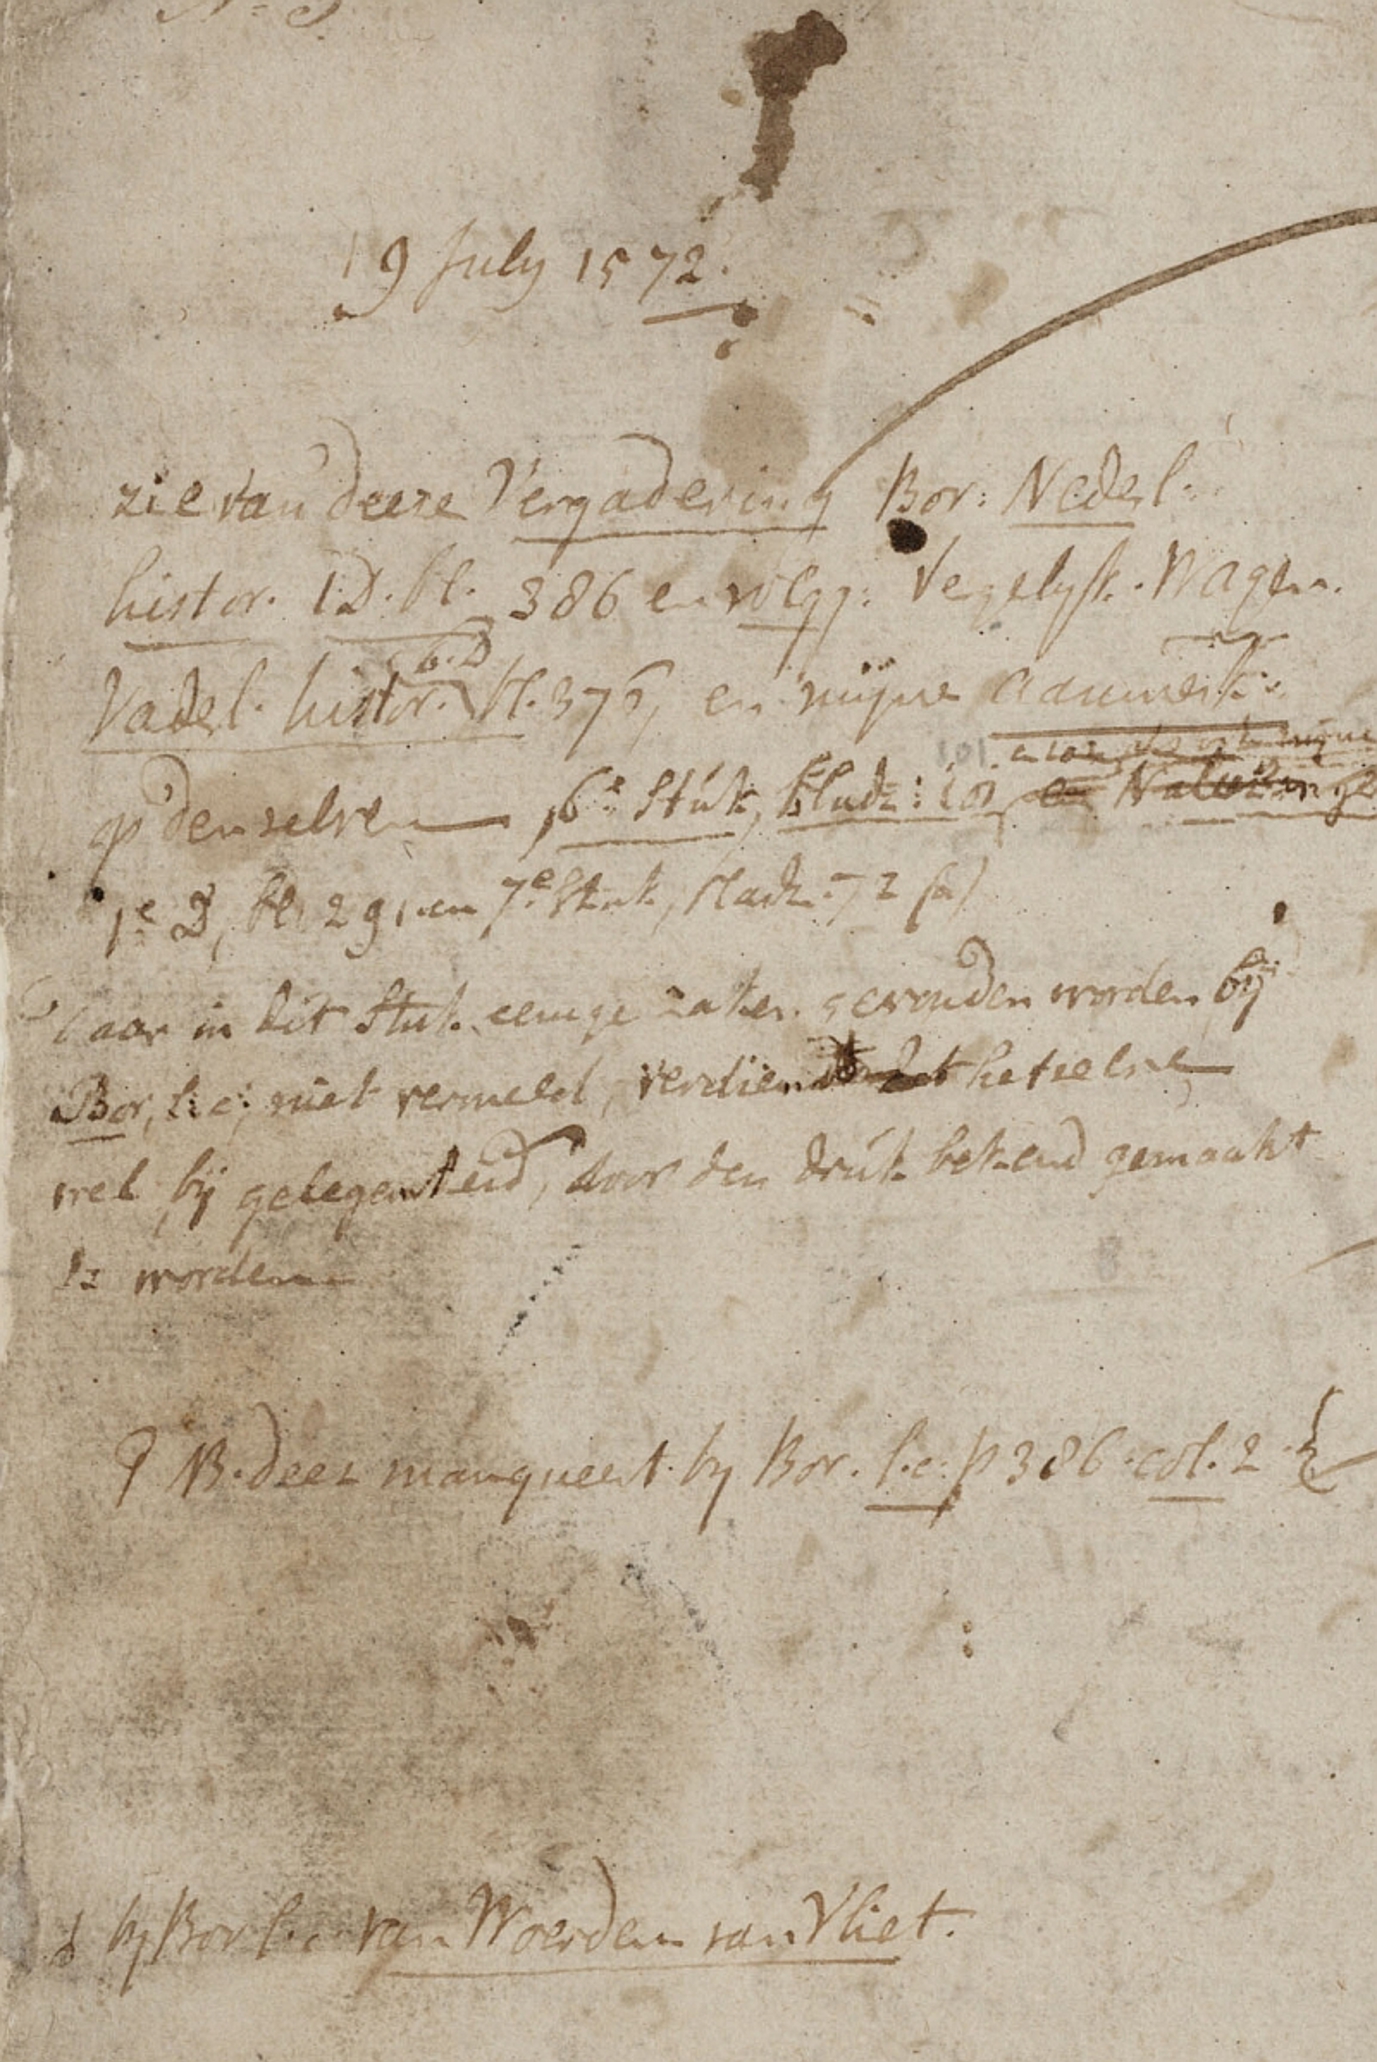 19 July 1572.
zie van deeze Vergadering Bor: Nederl.
histor. I.D. bl. 386 en volgg: Vergelyk. Wagen.
6.D
Vaderl. histor. bl. 375, en mijne aanmerk:
op denzelven 6e Stuk, bladz: 101 en Nalezingen
1e D, bl. 291. en 7e Stuk, bladz. 72 (a)
daar in dit Stuk eenige zaken gevonden worden bij
Bor, l: c:, niet vermeld, verdient hetzelve
wel bij gelegenheid, door den druk bekend gemaakt
te worden
NB. deez manqueert by Bor. l.c. p 386. col. 2
by Bor l.c. van Woerden van Vliet.